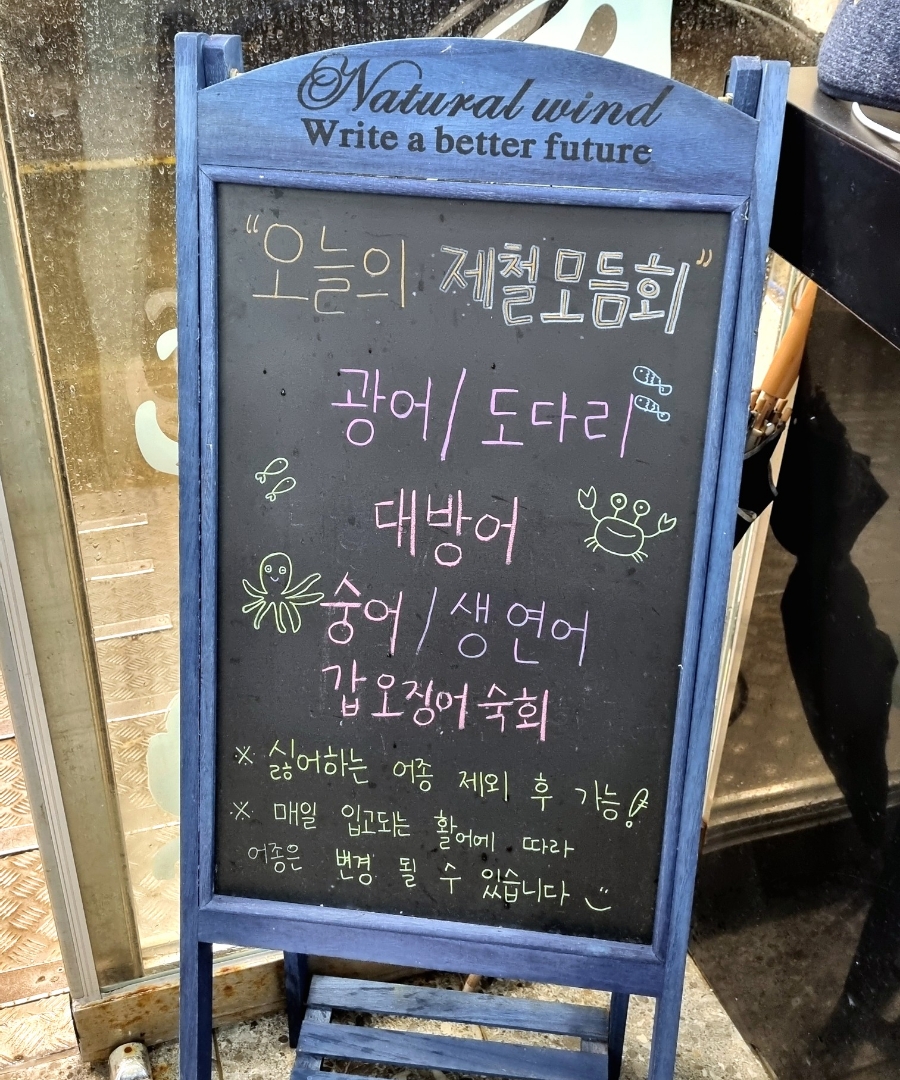 Natural wind
Write a better future
"오늘의 제철모듬회"
광어/도다리
대방어
숭어/생연어
갑오징어숙회
※ 싫어하는 어종 제외 후 가능!
※ 매일 입고되는 활어에 따라
어종은 변경 될 수 있습니다